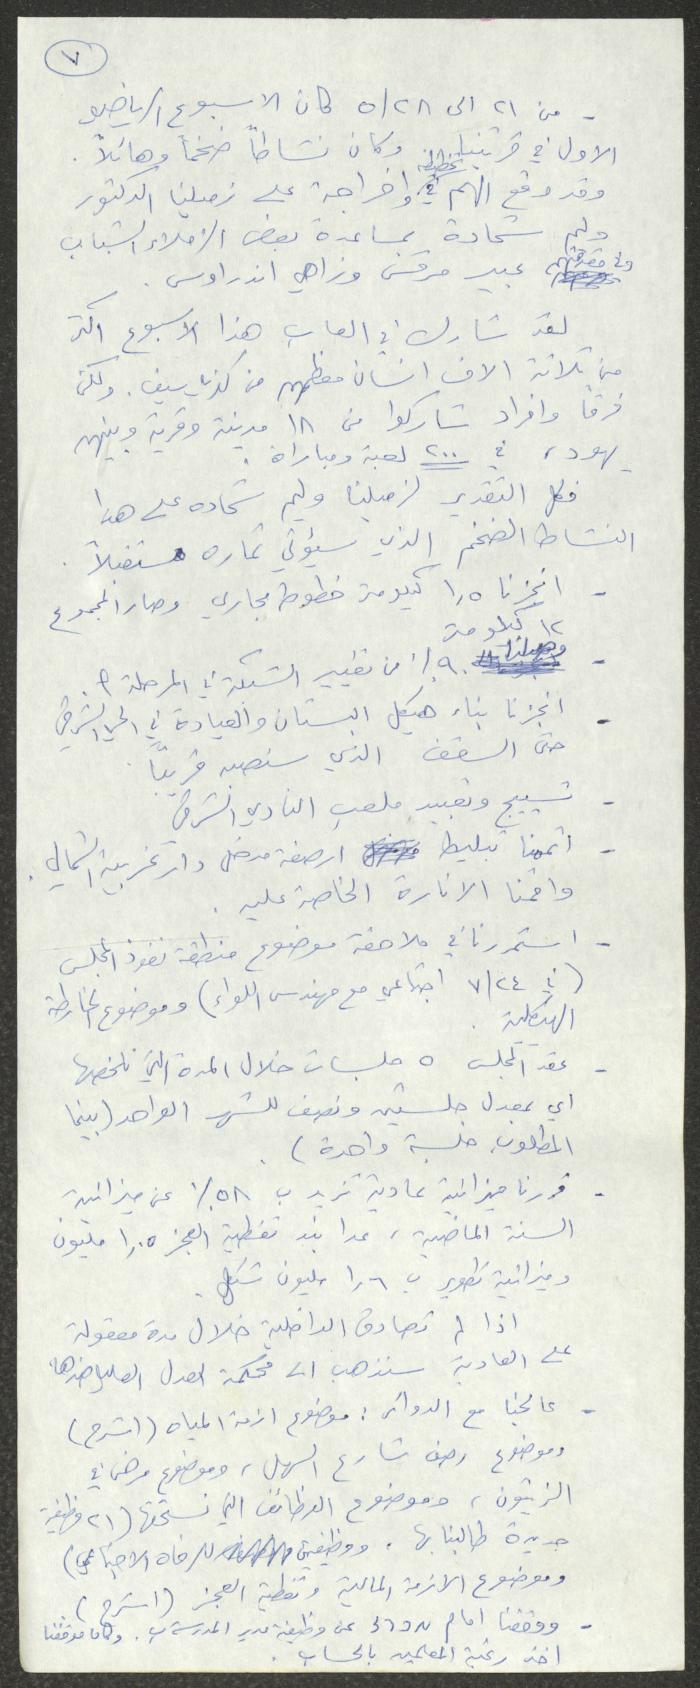 ٧
- من ٢١ الى ٥/٢٨ كان الاسبوع الرياضي
الاول في قريتنا وكان نشاطاً ضخماً وهائلاً.
وقد وقع الهم في تخطيطه واخراجه على زميلنا الدكتور
وليم شحادة بمساعدة بعض الزملاء الشباب
وفي مقدمتهم عبير مرقس وزاهي اندراوس.
لقد شارك في العاب هذا الاسبوع اكثر
من ثلاثة الاف انسان معظمهم من كفر ياسيف. ولكن
فرقاً وافراد شاركوا من ١٨ مدينة وقرية وبينهم
يهود، في ٢٠٠ لعبة ومباراة.
فكل التقدير لزميلنا وليم شحاده على هذا
النشاط الضخم الذي سيؤتي ثماره مستقبلاً.
- انجزنا ١,٥ كيلومتر خطوط مجاري وصار المجموع
١٢ كيلومتر
- وصلنا ٩٠٪ من تغيير الشبكة في المرحلة
- انجزنا بناء هيكل البستان والعيادة في الحي الشرقي
حتى السقف الذي سنصبه قريباً.
- تسييج وتعبيد ملعب النادي الشرقي
- اتممنا تبليط ارصفة مدخل دار غربية الشمالي.
واقمنا الانارة الخاصة عليه.
- استمررنا في ملاحقة موضوع منطقة نفوذ المجلس
(في ٧/٢٤ اجتماعي مع مهندس اللواء) وموضوع الخارطة
الهيكلية.
- عقد المجلس ٥ جلسات خلال المدة التي نلخصها
اي بمعدل جلستين ونصف للشهر الواحد (بينما
المطلوب جلسة واحدة).
- قررنا ميزانية عادية تزيد ب ٥٨٪ عن ميزانية
السنة الماضية، عدا بند تغطية العجز ١,٠٥ مليون
وميزانية تطوير ب ١,٦ مليون شيكل.
اذا لم تصادق الداخلية خلال مدة معقولة
على العادية سنذهب الى محكمة العدل العليا ضدها
- عالجنا مع الدوائر: موضوع ازمة المياه (اشرح)
وموضوع رصف شارع السهل، وموضوع مرض في
الزيتون، وموضوع الوظائف التي نستحقها (٢١ وظيفة
جديدة طالبنا بها. ووظيفتين للرفاه الاجتماعي)
وموضوع الازمة المالية وتغطية العجز (اشرح)
- ووقفنا امام عن وظيفة مدير المدرسة ب. وكان موقفنا
اخذ رغبة المعلمين بالحساب.